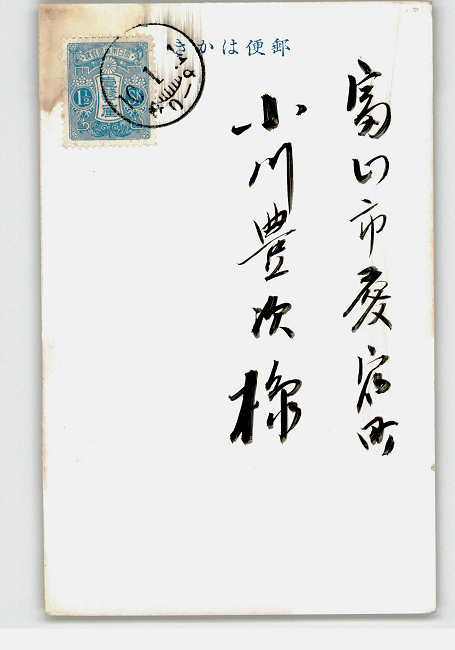 郵便はかき
富山市愛宕町
小川豊次様
1½
10.1.1